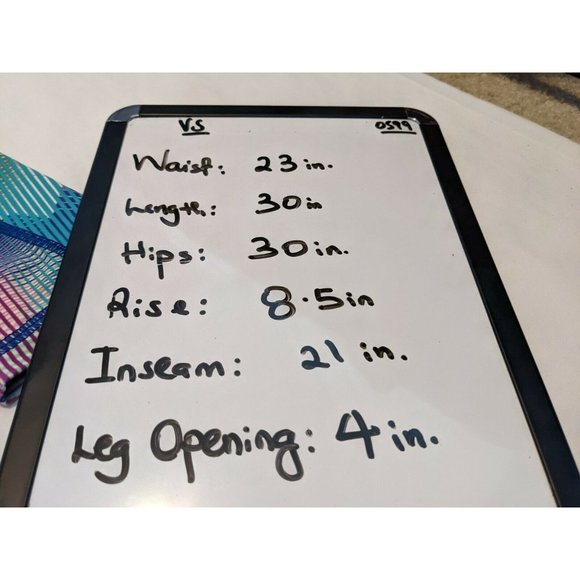 VS 0599
Waist: 23 in.
Length: 30 in
Hips: 30 in.
Rise: 8.5 in
Inseam: 21 in.
Leg Opening: 4 in.